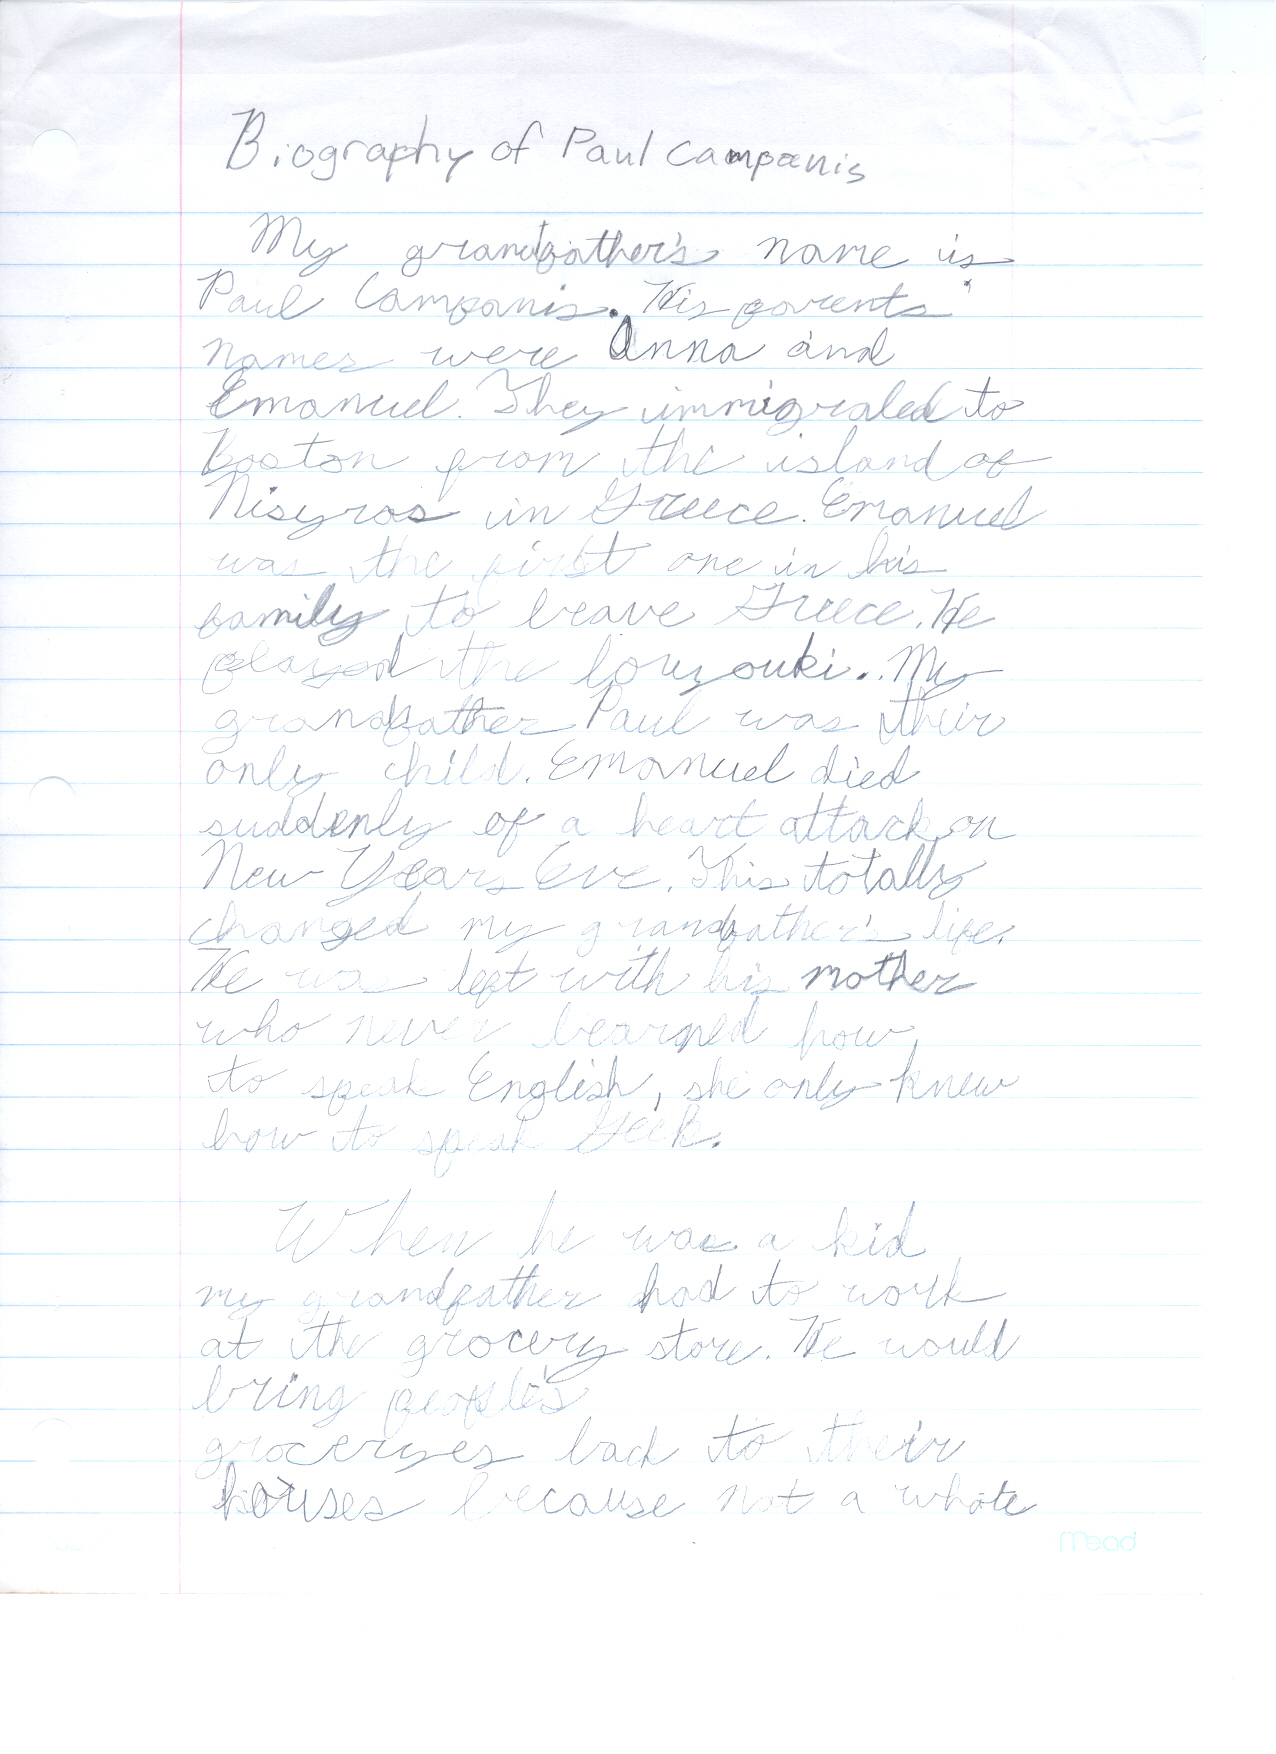 Biography of Paul Campanis
My grandfather's name is
Paul Campanis. His parents'
names were Anna and
Emanuel. They immigrated to
Boston from the island of
Nisyros in Greece. Emanuel
was the first one in his
family to leave Greece. He
played the bouzouki. My
grandfather Paul was their
only child. Emanuel died
suddenly of a heart attack on
New Years Eve. This totally
changed my grandfather's life.
He was left with his mother
who never learned how
to speak English, she only knew
how to speak Geek.
When he was a kid
my grandfather had to work
at the grocery store. He would
bring people's
groceryes back to their
houses because not a whole
Mead